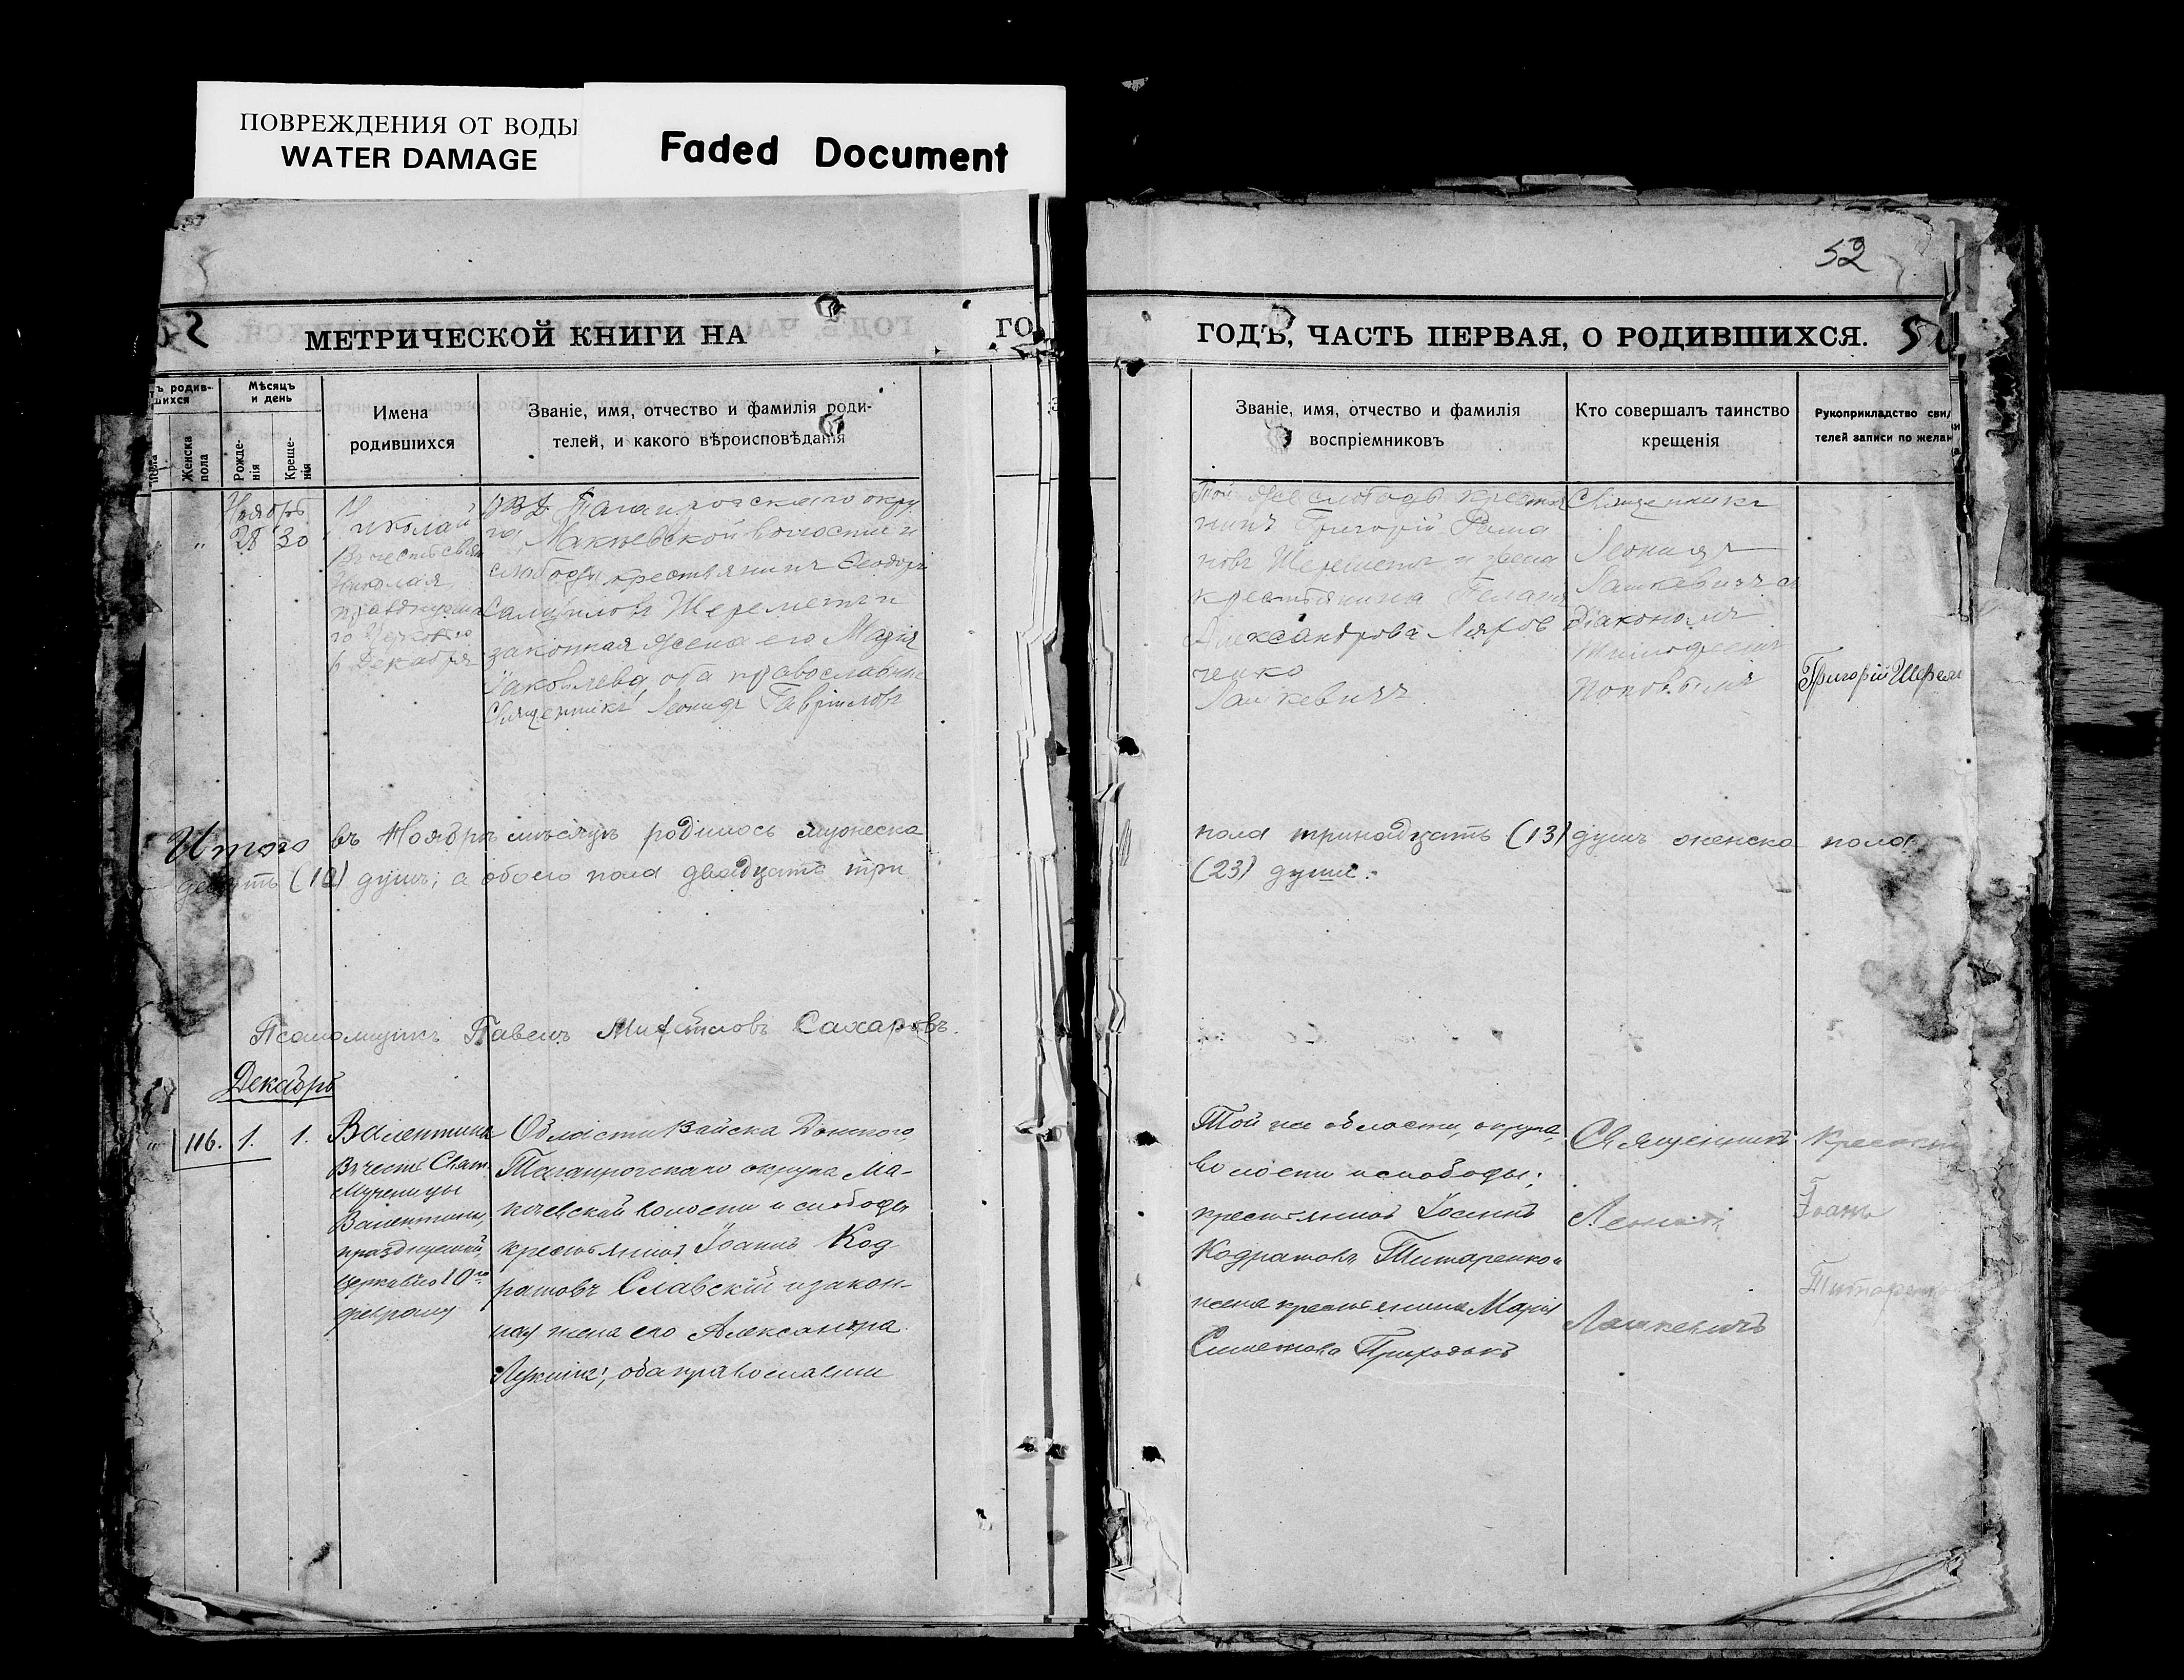 ПОВРЕЖДЕНИЯ ОТ ВОДЫ
WATER DAMAGE
Faded Document
52
МЕТРИЧЕСКОЙ КНИГИ НА
ГО
ГОДЪ, ЧАСТЬ ПЕРВАЯ, О РОДИВШИХСЯ.
ъ родив-
шихся
Мѣсяцъ
и день
Женска
пола
Рожде-
нія
Креще-
нія
Имена
родившихся
Званіе, имя, отчество и фамилія роди-
телей, и какого вѣроисповѣданія
Званіе, имя, отчество и фамилія
воспріемниковъ
Кто совершалъ таинство
крещенія
Рукоприкладство сви
телей записи по желан
Ноябрь
28 30
Николай
Въ честь свят
Николая
празднуема
го Церковію
6 Декабря
ОВД Таганрогскаго окру
га, Макѣевской волости и
слободы крестьянинъ Ѳеодоръ
Самуиловъ Шереметъ и
законная жена его Марія
Іаковлева оба православные
Священникъ Леонидъ Гавріиловъ
Той же слободы крестья
нинъ Григорій Рома
новъ Шереметъ и жена
крестьянина Пелагія
Александрова Ляхов
ченко
Лашкевичъ
Священникъ
Леонидъ
Лашкевичъ съ
Діакономъ
Тимофеемъ
Поповымъ
Григорій Шерем
Итого въ Ноябрѣ мѣсяцѣ родилось мужеска
пола тринадцать (13) душъ женска пола
десять (10) душъ; а обоего пола двадцать три
(23) души.
Псаломщикъ Павелъ Сахаровъ.
Декабрь
116. 1. 1.
Валентина
Въ честь Свят.
Мученицы
Валентины,
празднуемой
церковію 10го
февраля
Области Войска Донского,
Таганрогскаго округа Ма-
кѣевской волости и слободы
крестьянинъ Іоаннъ Код
ратовъ Славскій и закон-
ная жена его Александра
Лукина; оба православны
Той же области, округа,
волости и слободы;
крестьянинъ Іоаннъ
Кодратовъ Титаренко и
жена крестьянина Марія
Симеонова Приходько
Священникъ
Леонидъ
Лашкевичъ
Крестьян
Іоанъ
Титаренко